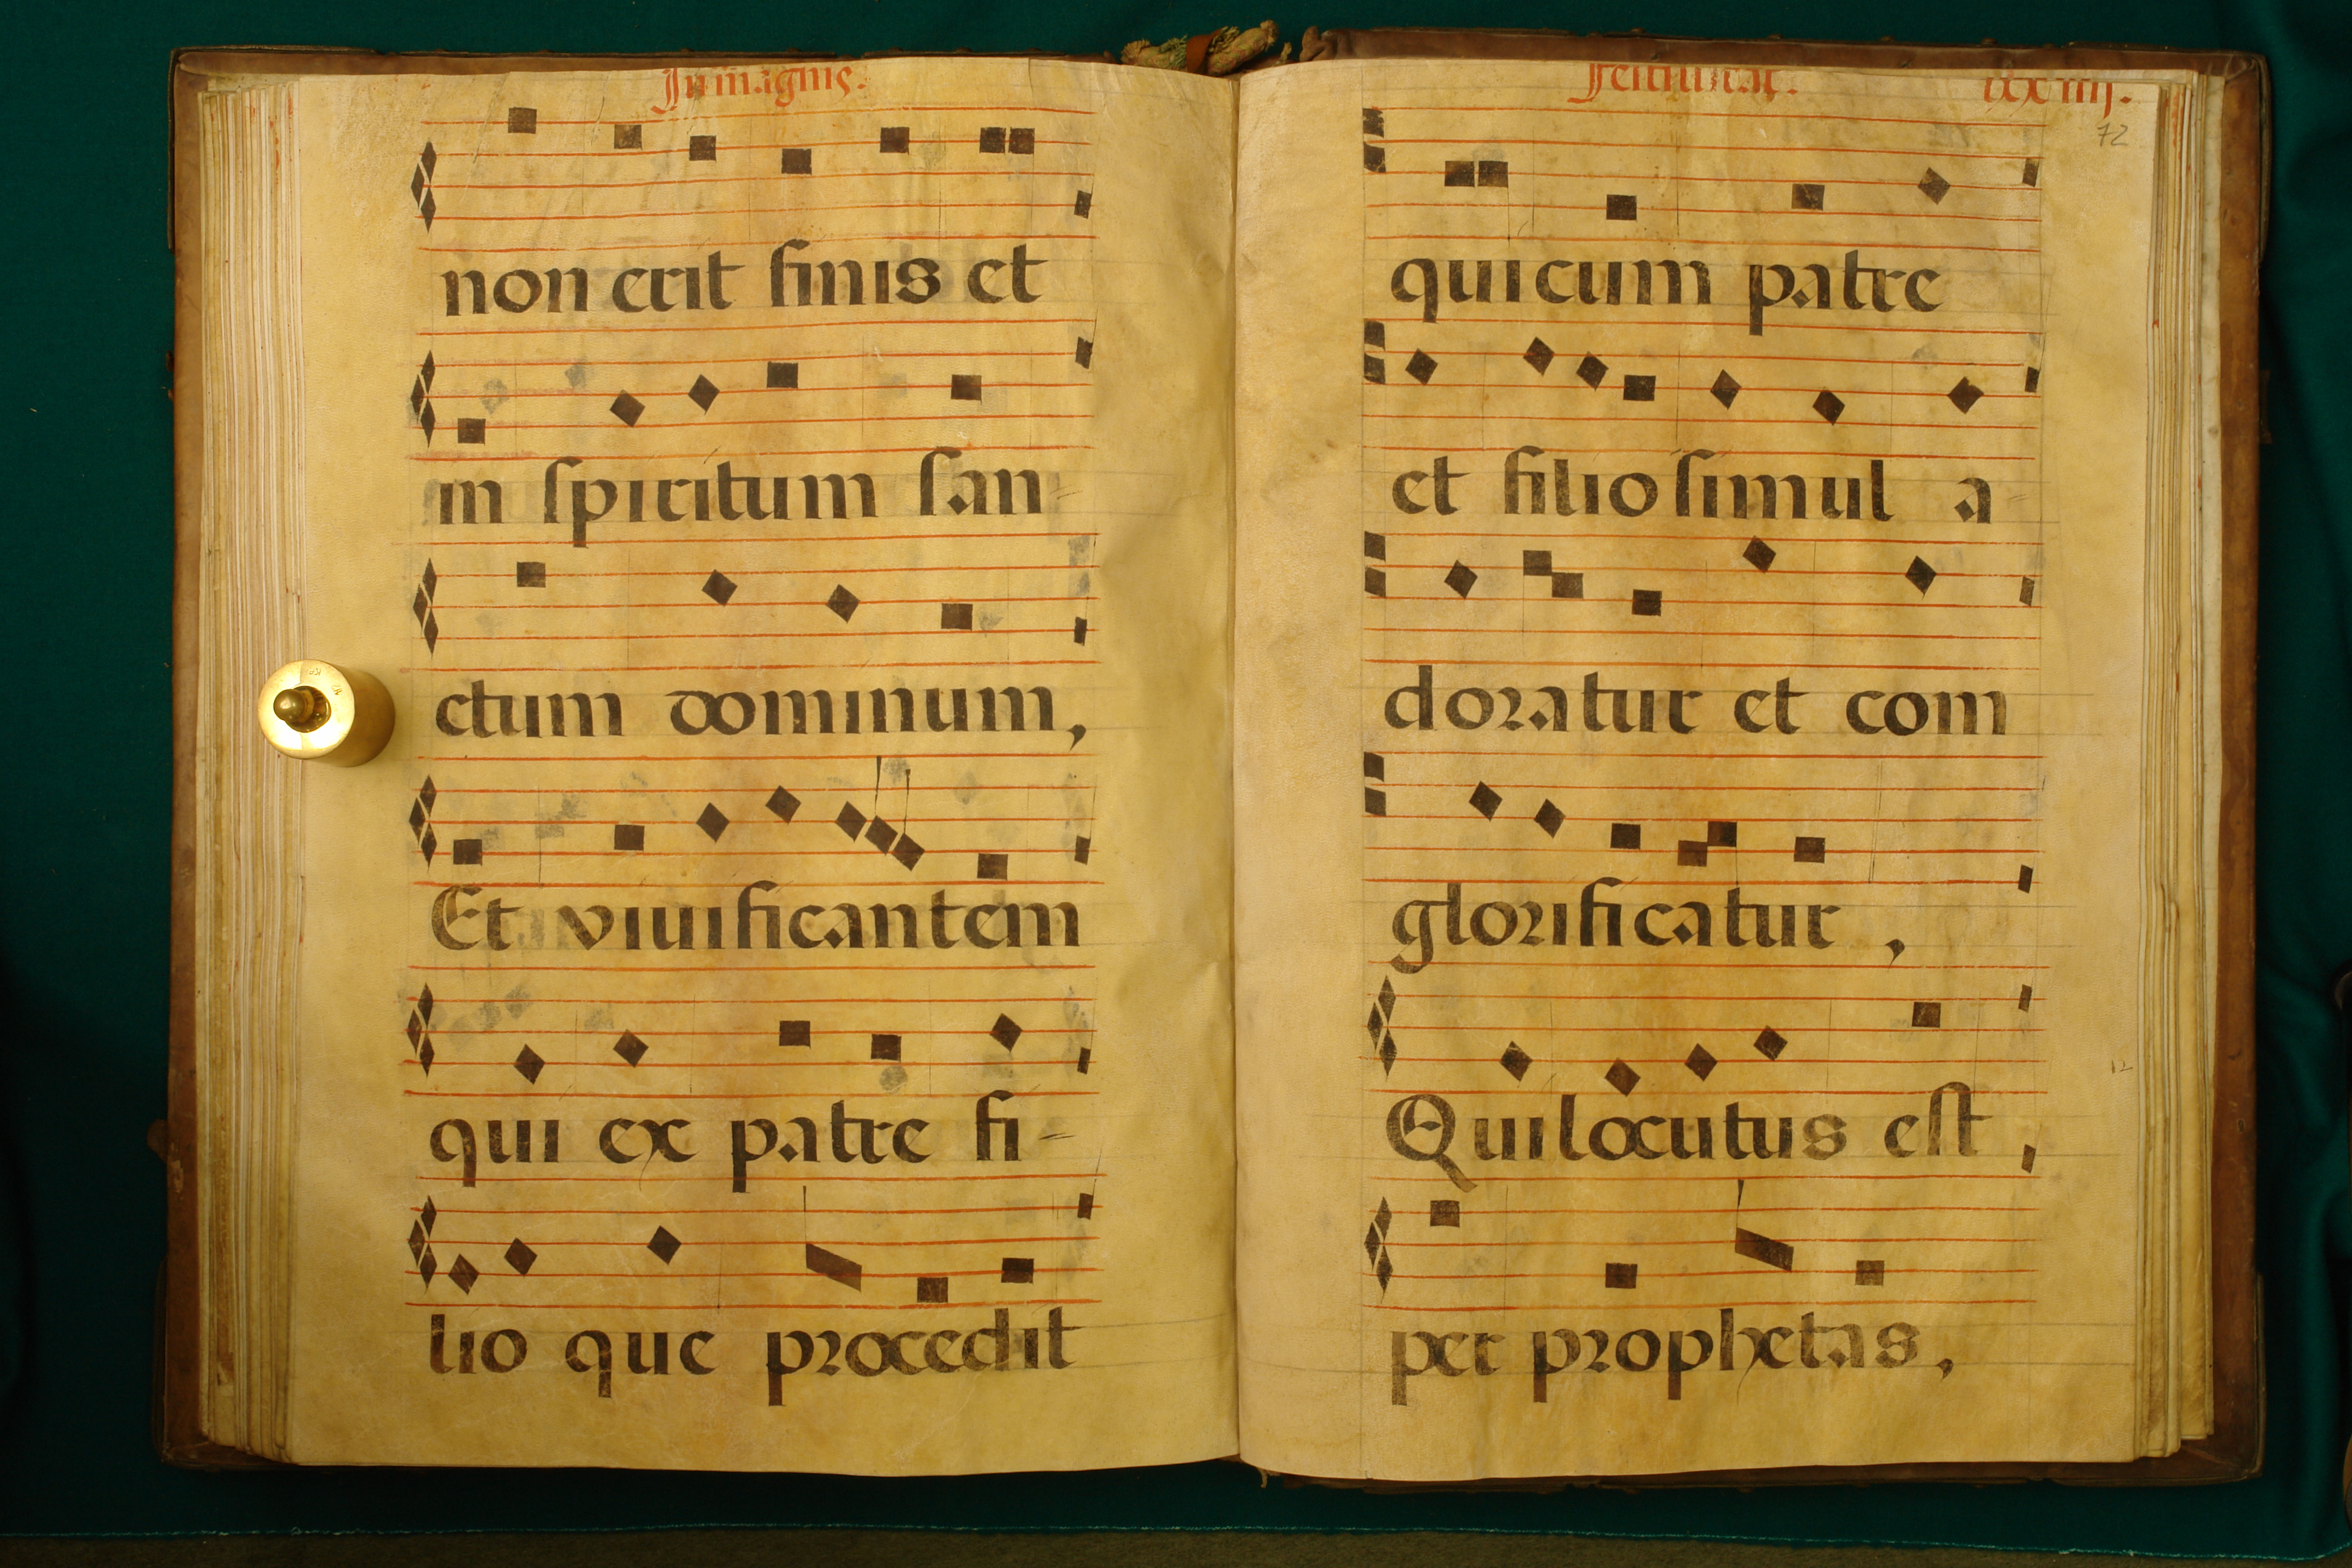 In magnis.
non erit finis et
in spiritum san-
ctum dominum,
Et viuificantem
qui ex patre fi-
lio que procedit
Festiuitat.
lxxiiij.
72
qui cum patre
et filio simul a-
doratur et com
glorificatur,
12
Qui locutus est,
per prophetas,